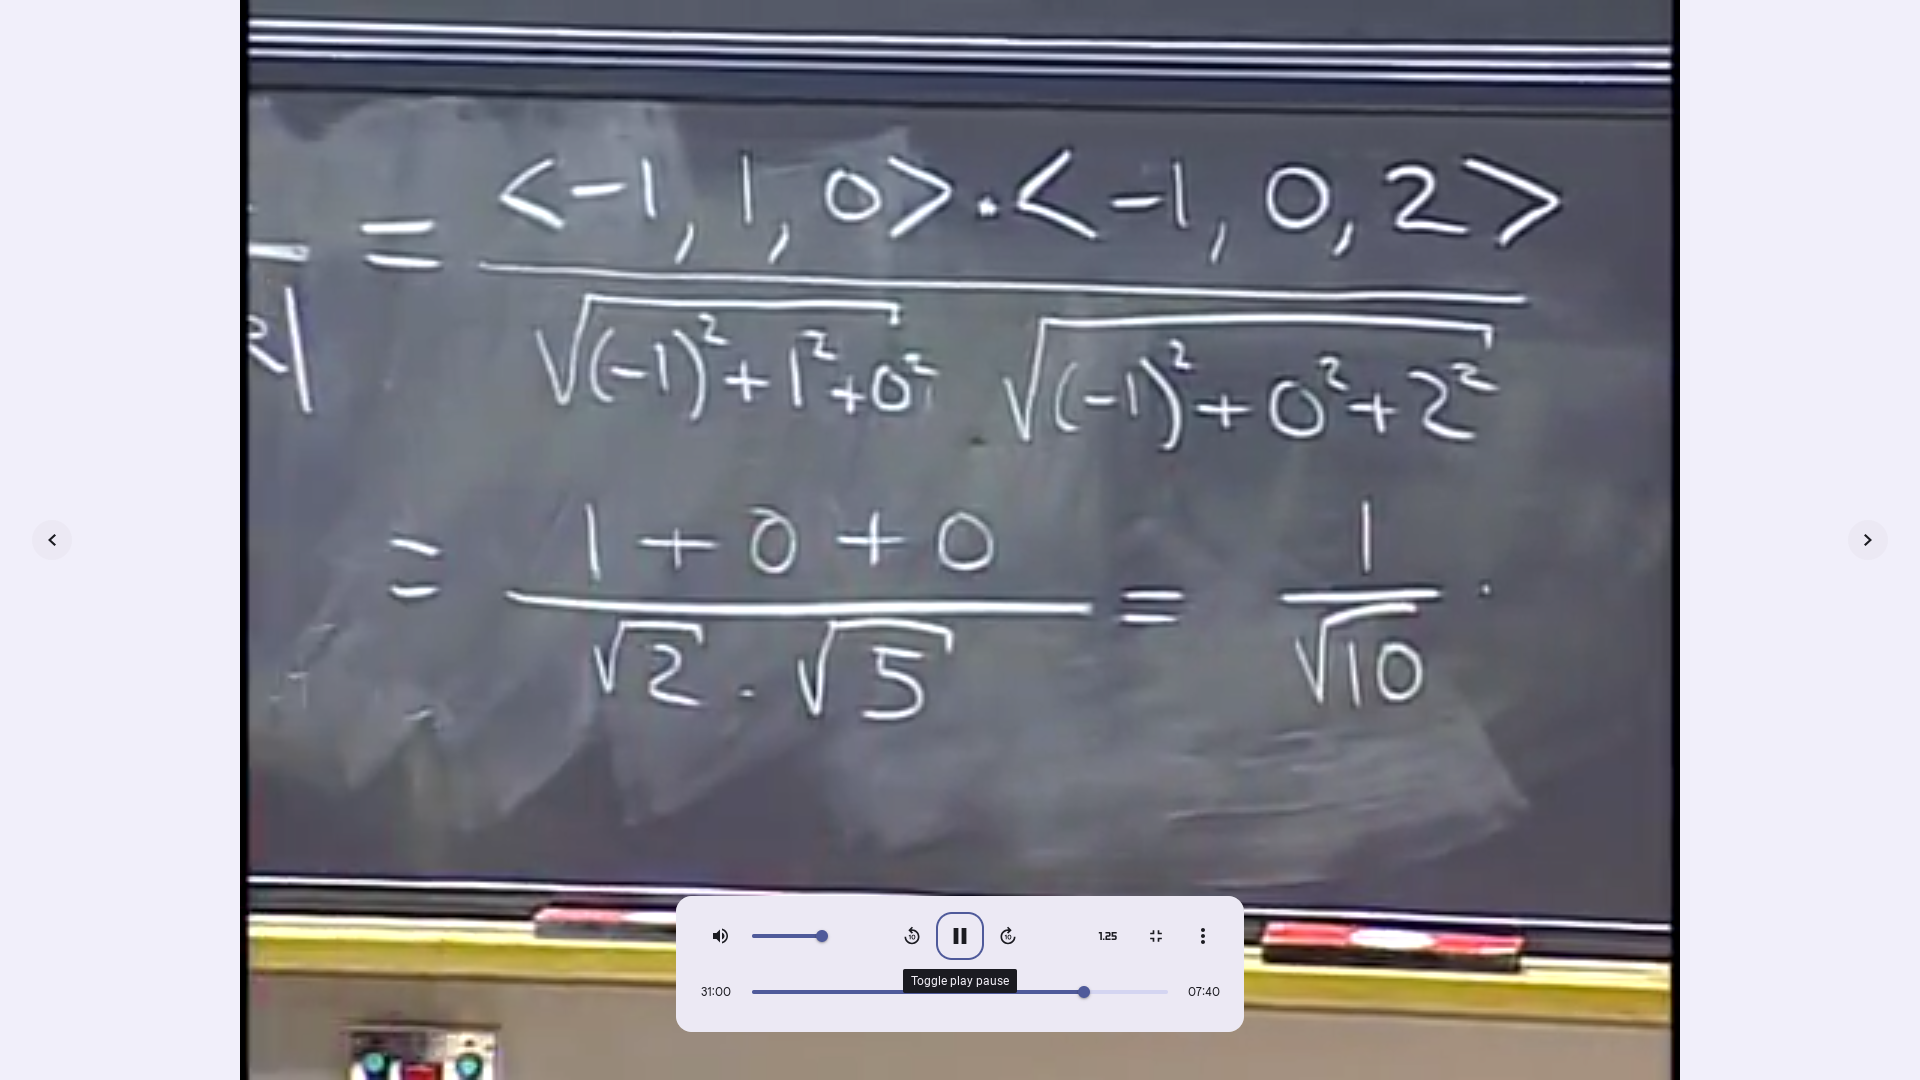 = <-1, 1, 0> · <-1, 0, 2>
√(-1)²+1²+0² √(-1)²+0²+2²
= 1+0+0 = 1 .
√2 . √5 √10
1.25
Toggle play pause
31:00 07:40